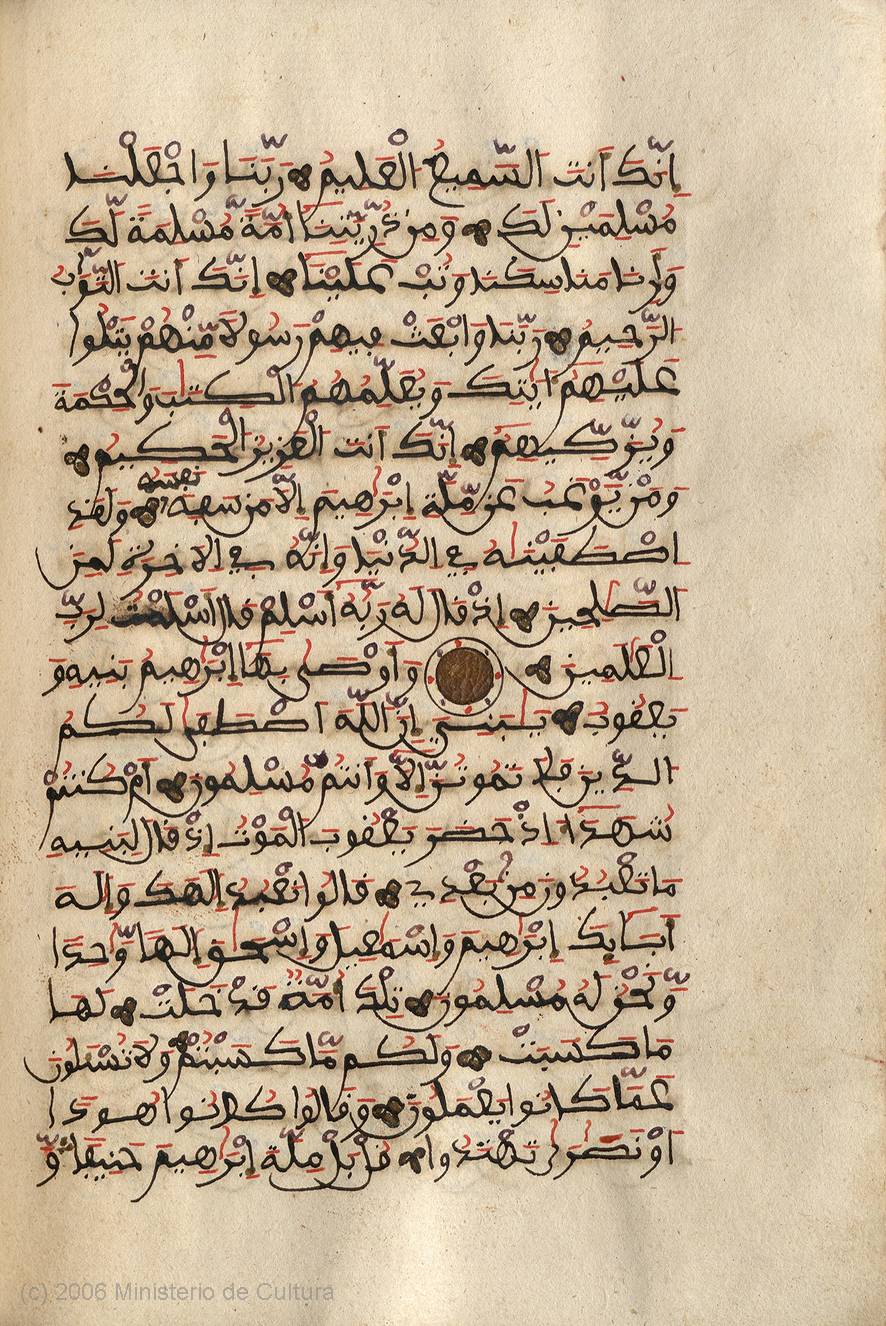 إِنَّكَ أَنتَ السَّمِيعُ الْعَلِيمُ رَبَّنَا وَاجْعَلْنَا
مُسْلِمَيْنِ لَكَ وَمِن ذُرِّيَّتِنَا أُمَّةً مُّسْلِمَةً لَّكَ
وَأَرِنَا مَنَاسِكَنَا وَتُبْ عَلَيْنَا إِنَّكَ أَنتَ التَّوَّابُ
الرَّحِيمُ رَبَّنَا وَابْعَثْ فِيهِمْ رَسُولًا مِّنْهُمْ يَتْلُوا
عَلَيْهِمْ ءَايَٰتِكَ وَيُعَلِّمُهُمُ الْكِتَٰبَ وَالْحِكْمَةَ
وَيُزَكِّيهِمْ إِنَّكَ أَنتَ الْعَزِيزُ الْحَكِيمُ
وَمَنْ يَّرْغَبُ عَن مِّلَّةِ إِبْرَٰهِيمَ إِلَّا مَن سَفِهَ نَفْسَهُ وَلَقَدِ
اصْطَفَيْنَٰهُ فِي الدُّنْيَا وَإِنَّهُ فِي الْأَخِرَةِ لَمِنَ
الصَّٰلِحِينَ إِذْ قَالَ لَهُ رَبُّهُ أَسْلِمْ قَالَ أَسْلَمْتُ لِرَبِّ
الْعَٰلَمِينَ وَأَوْصَىٰ بِهَا إِبْرَٰهِيمُ بَنِيهِ وَ
يَعْقُوبُ يَٰبَنِيَّ إِنَّ اللَّهَ اصْطَفَىٰ لَكُمُ
الدِّينَ فَلَا تَمُوتُنَّ إِلَّا وَأَنتُم مُّسْلِمُونَ أَمْ كُنتُمْ
شُهَدَاءَ إِذْ حَضَرَ يَعْقُوبَ الْمَوْتُ إِذْ قَالَ لِبَنِيهِ
مَا تَعْبُدُونَ مِن بَعْدِي قَالُوا نَعْبُدُ إِلَٰهَكَ وَإِلَٰهَ
ءَابَائِكَ إِبْرَٰهِيمَ وَإِسْمَٰعِيلَ وَإِسْحَٰقَ إِلَٰهًا وَّٰحِدًا
وَّنَحْنُ لَهُ مُسْلِمُونَ تِلْكَ أُمَّةٌ قَدْ خَلَتْ لَهَا
مَا كَسَبَتْ وَلَكُم مَّا كَسَبْتُمْ وَلَا تُسْـَٔلُونَ
عَمَّا كَانُوا يَعْمَلُونَ وَقَالُوا كُونُوا هُودًا
أَوْ نَصَٰرَىٰ تَهْتَدُوا قُلْ بَلْ مِلَّةَ إِبْرَٰهِيمَ حَنِيفًا وَّ
(c) 2006 Ministerio de Cultura